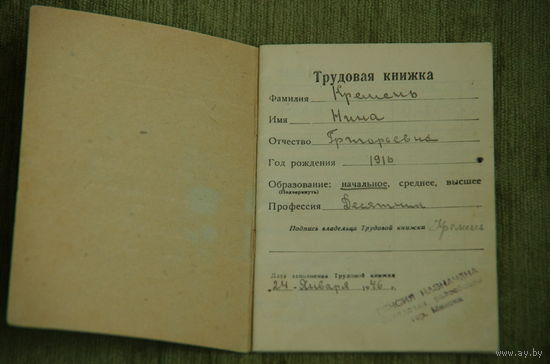 Трудовая книжка
Фамилия Кремень
Имя Нина
Отчество Григорьевна
Год рождения 1916
Образование: начальное, среднее, высшее
(Подчеркнуть)
Профессия Десятник
Подпись владельца Трудовой книжки Кремень
Дата заполнения Трудовой книжки
"24" Января 1946 г.
ПЕНСИЯ НАЗНАЧЕНА
гор. Минска
www.ay.by